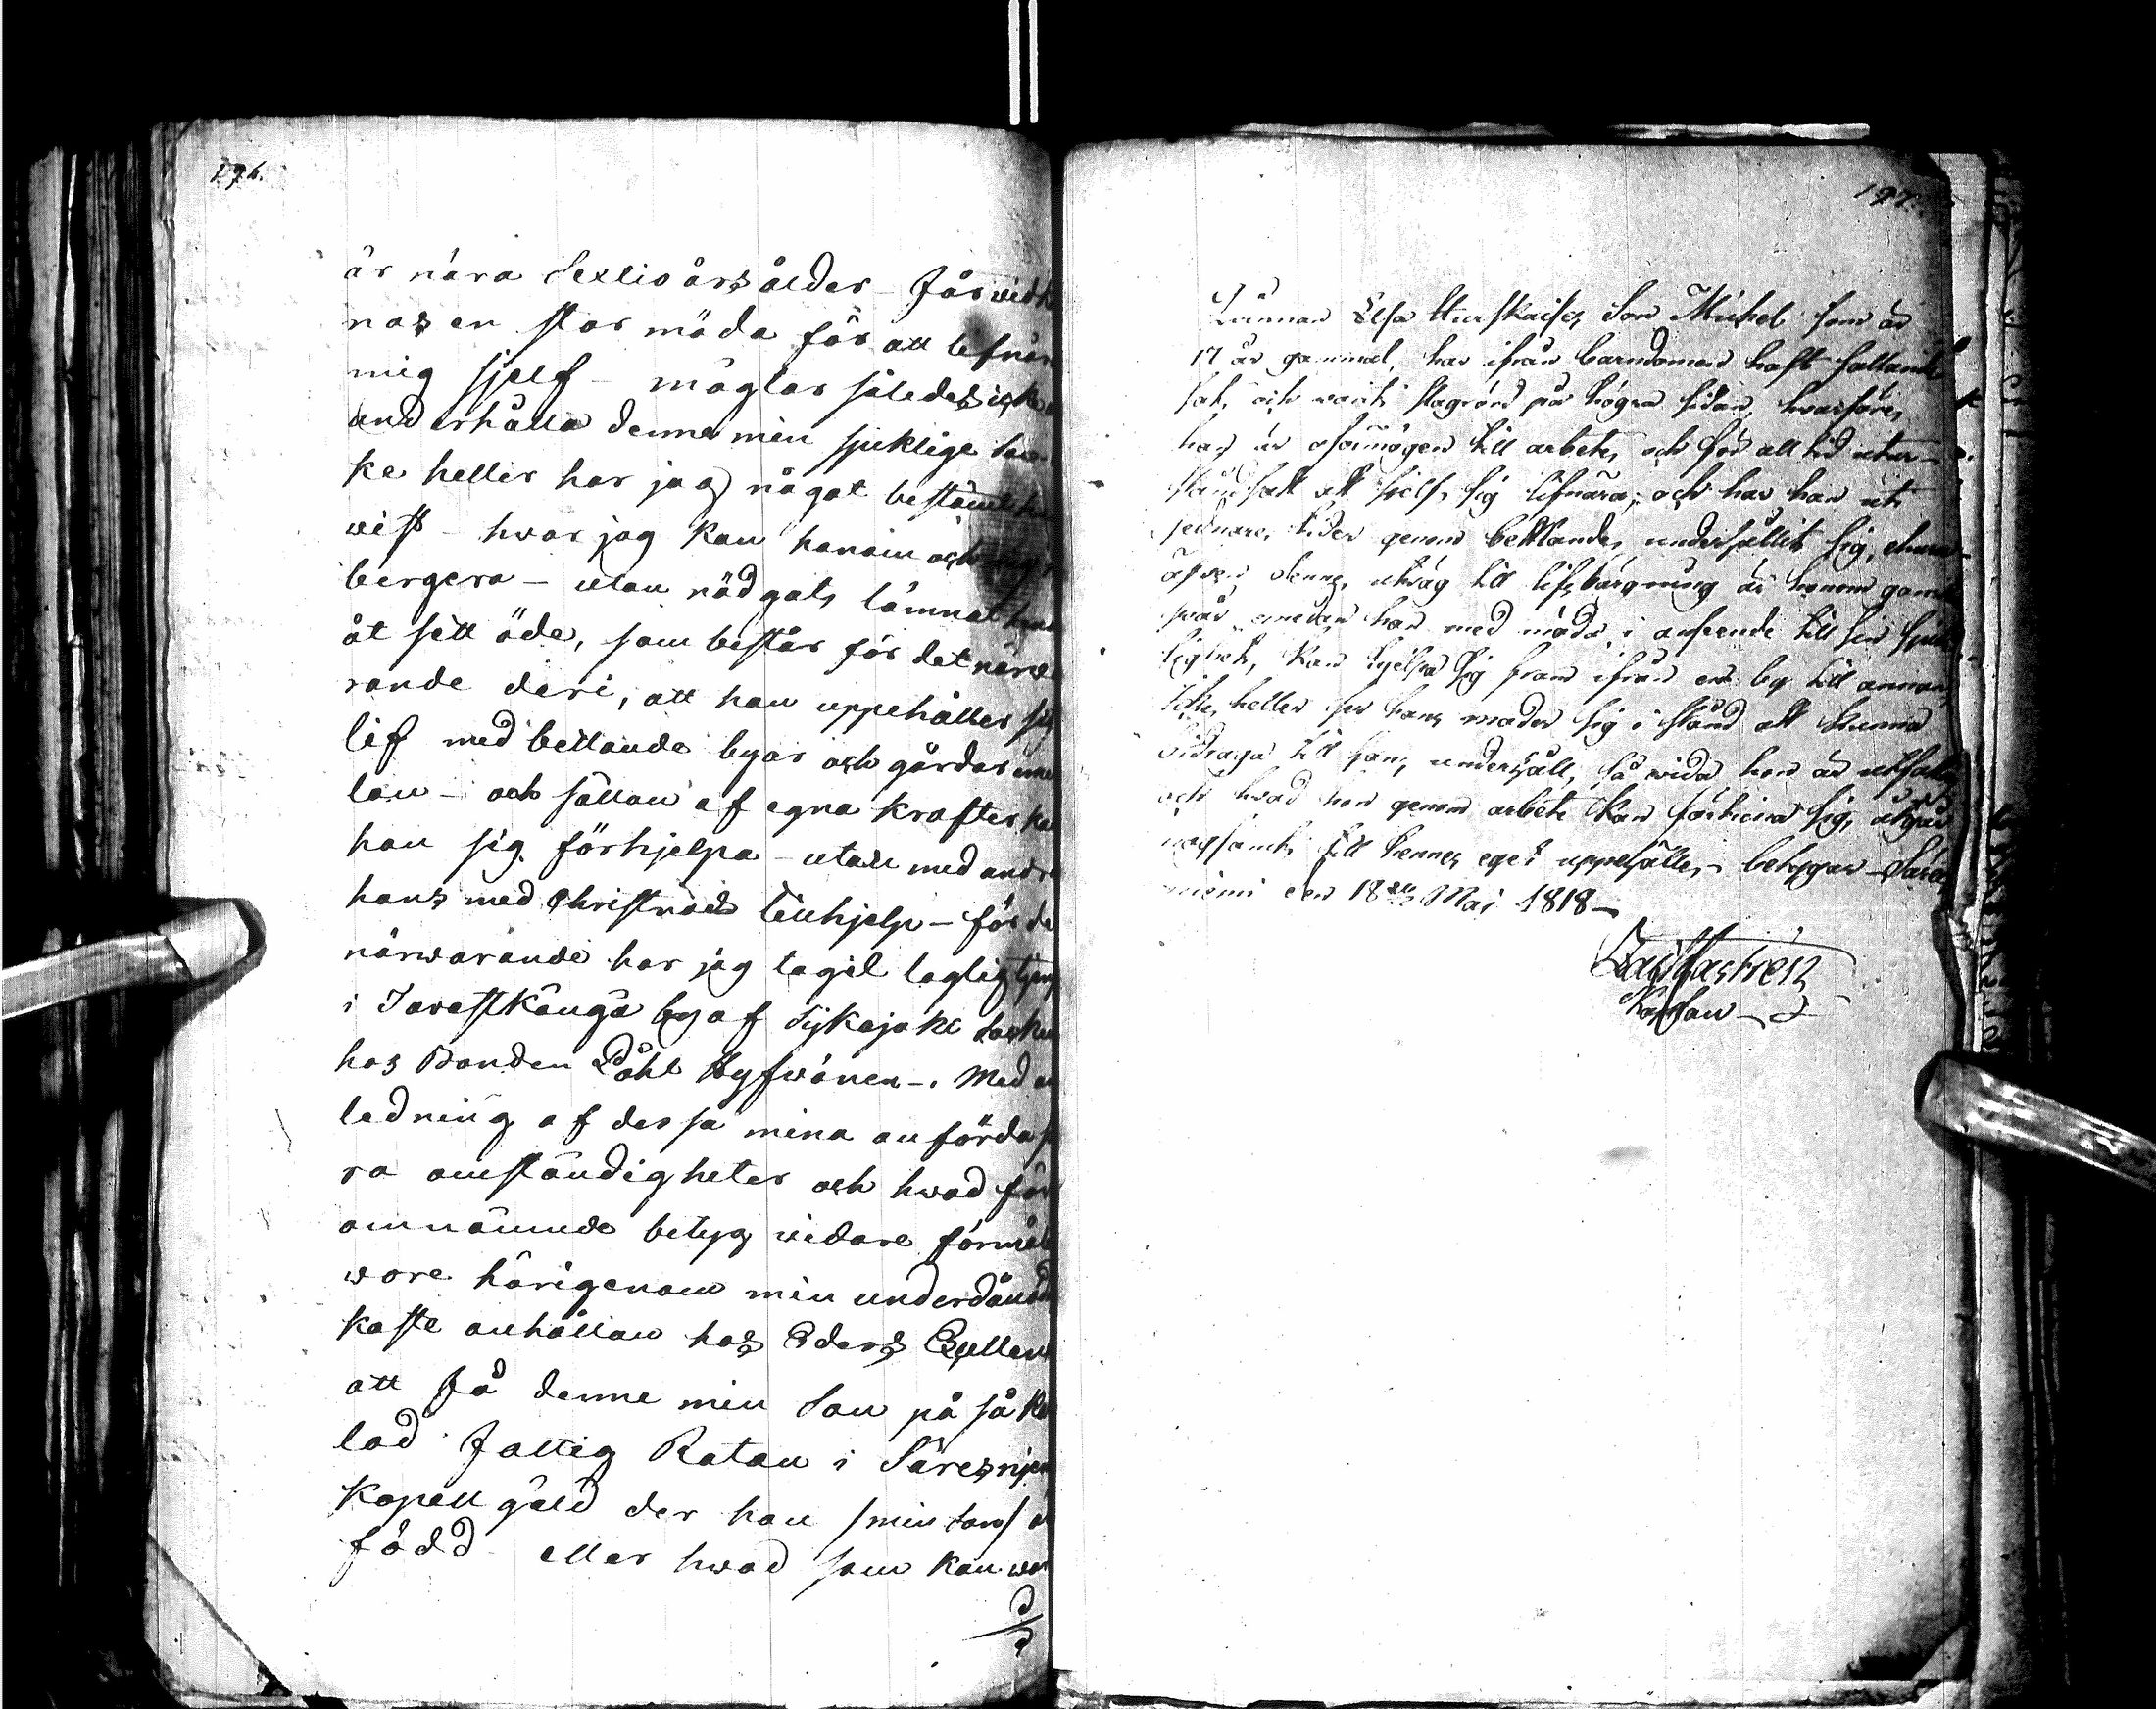 196.
är nära Sextio års ålder - får vid
nas en stor möda för att
mig sjelf - mägtar således icke
underhålla denne min sjuklige Son
ke heller har jag något bestämt
vist - hvar jag kan honom och
bergera - utan nödgats lämnat
åt sitt öde, som består för det närva
rande deri, att han uppehåller sit
lif med bettlande byar och gårdar eme
lan - och sällan af egna krafter kan
han sig förhjelpa - utan med andra
hans med Christnads tillhjelp - för de
närwarande har jag tagit laglig
i by af Sijkajoki Socken
hos Bonden Påhl Hyfwönen -. Med an
ledning af dessa mina anförda
ra omständigheter och hwad för
omnämnde betyg vidare förmäl
wore härigenom min underdånåd
kaste anhållan hos Eders Exellens
att få denne min Son på så
lad Fattig Ratan i
Kapell gäld der han /min Son/ är
född - eller hwad som kan war
197.
Qwinnan Elsa Son Michel som är
17 år gammal, har ifrån barndomen haft fallande
sot, och warit slagrörd på högra sidan, hvarföre,
han är oförmögen till arbete, och för all tid utur-
ståndsatt att sjelf, sig lifnära; och har han uti
sednare, tider genom bettlande, underhållit sig, ehuru-
äfven denna, utväg till lifsbärgning är honom ganska
svår emedan han med möda, i anseende till sin sjuk
lighet, kan hjelpa sig fram ifrån en by till annan,
Icke, heller ser hans moder sig i stånd att kunna
bidraga till hans underhåll, så vida hon är utfattig
och hvad hon genom arbete kan förtiena sig, åtgår
nogsamt, till hennes eget uppehälle, - betygar -
niemi den 18de Maj 1818 -
Castrén
Kaplan